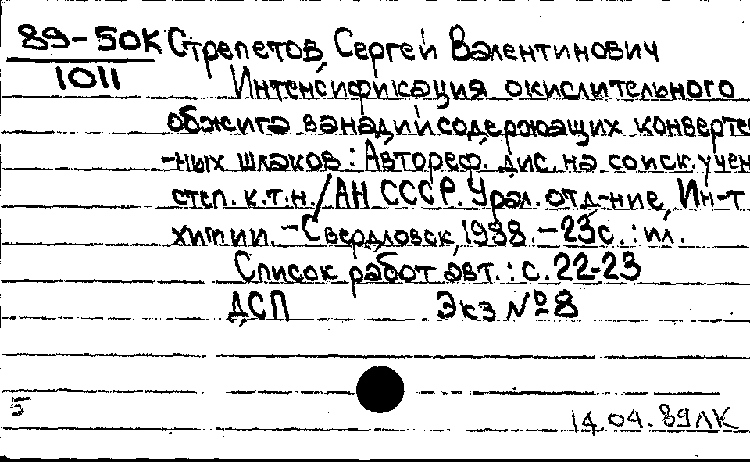 89-50К Стрепетов, Сергей Валентинович
1011 Интенсификация окислительного
обжига ванадийсодержащих конверте
-ных шлаков: Автореф. дис. на соиск. учен
степ. к.т.н./АН СССР. Урал. отд-ние, Ин-т
химии. -Свердловск, 1988. -23с.: ил.
Список работ авт.: с. 22-23
ДСП Экз № 8
5
14.04.89ЛК